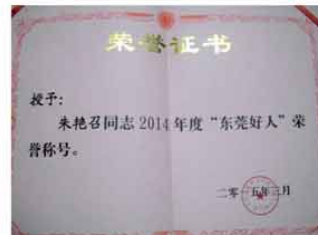 荣誉证书
授予：
朱艳召同志2014年度“东莞好人”荣
誉称号。
二零一五年三月